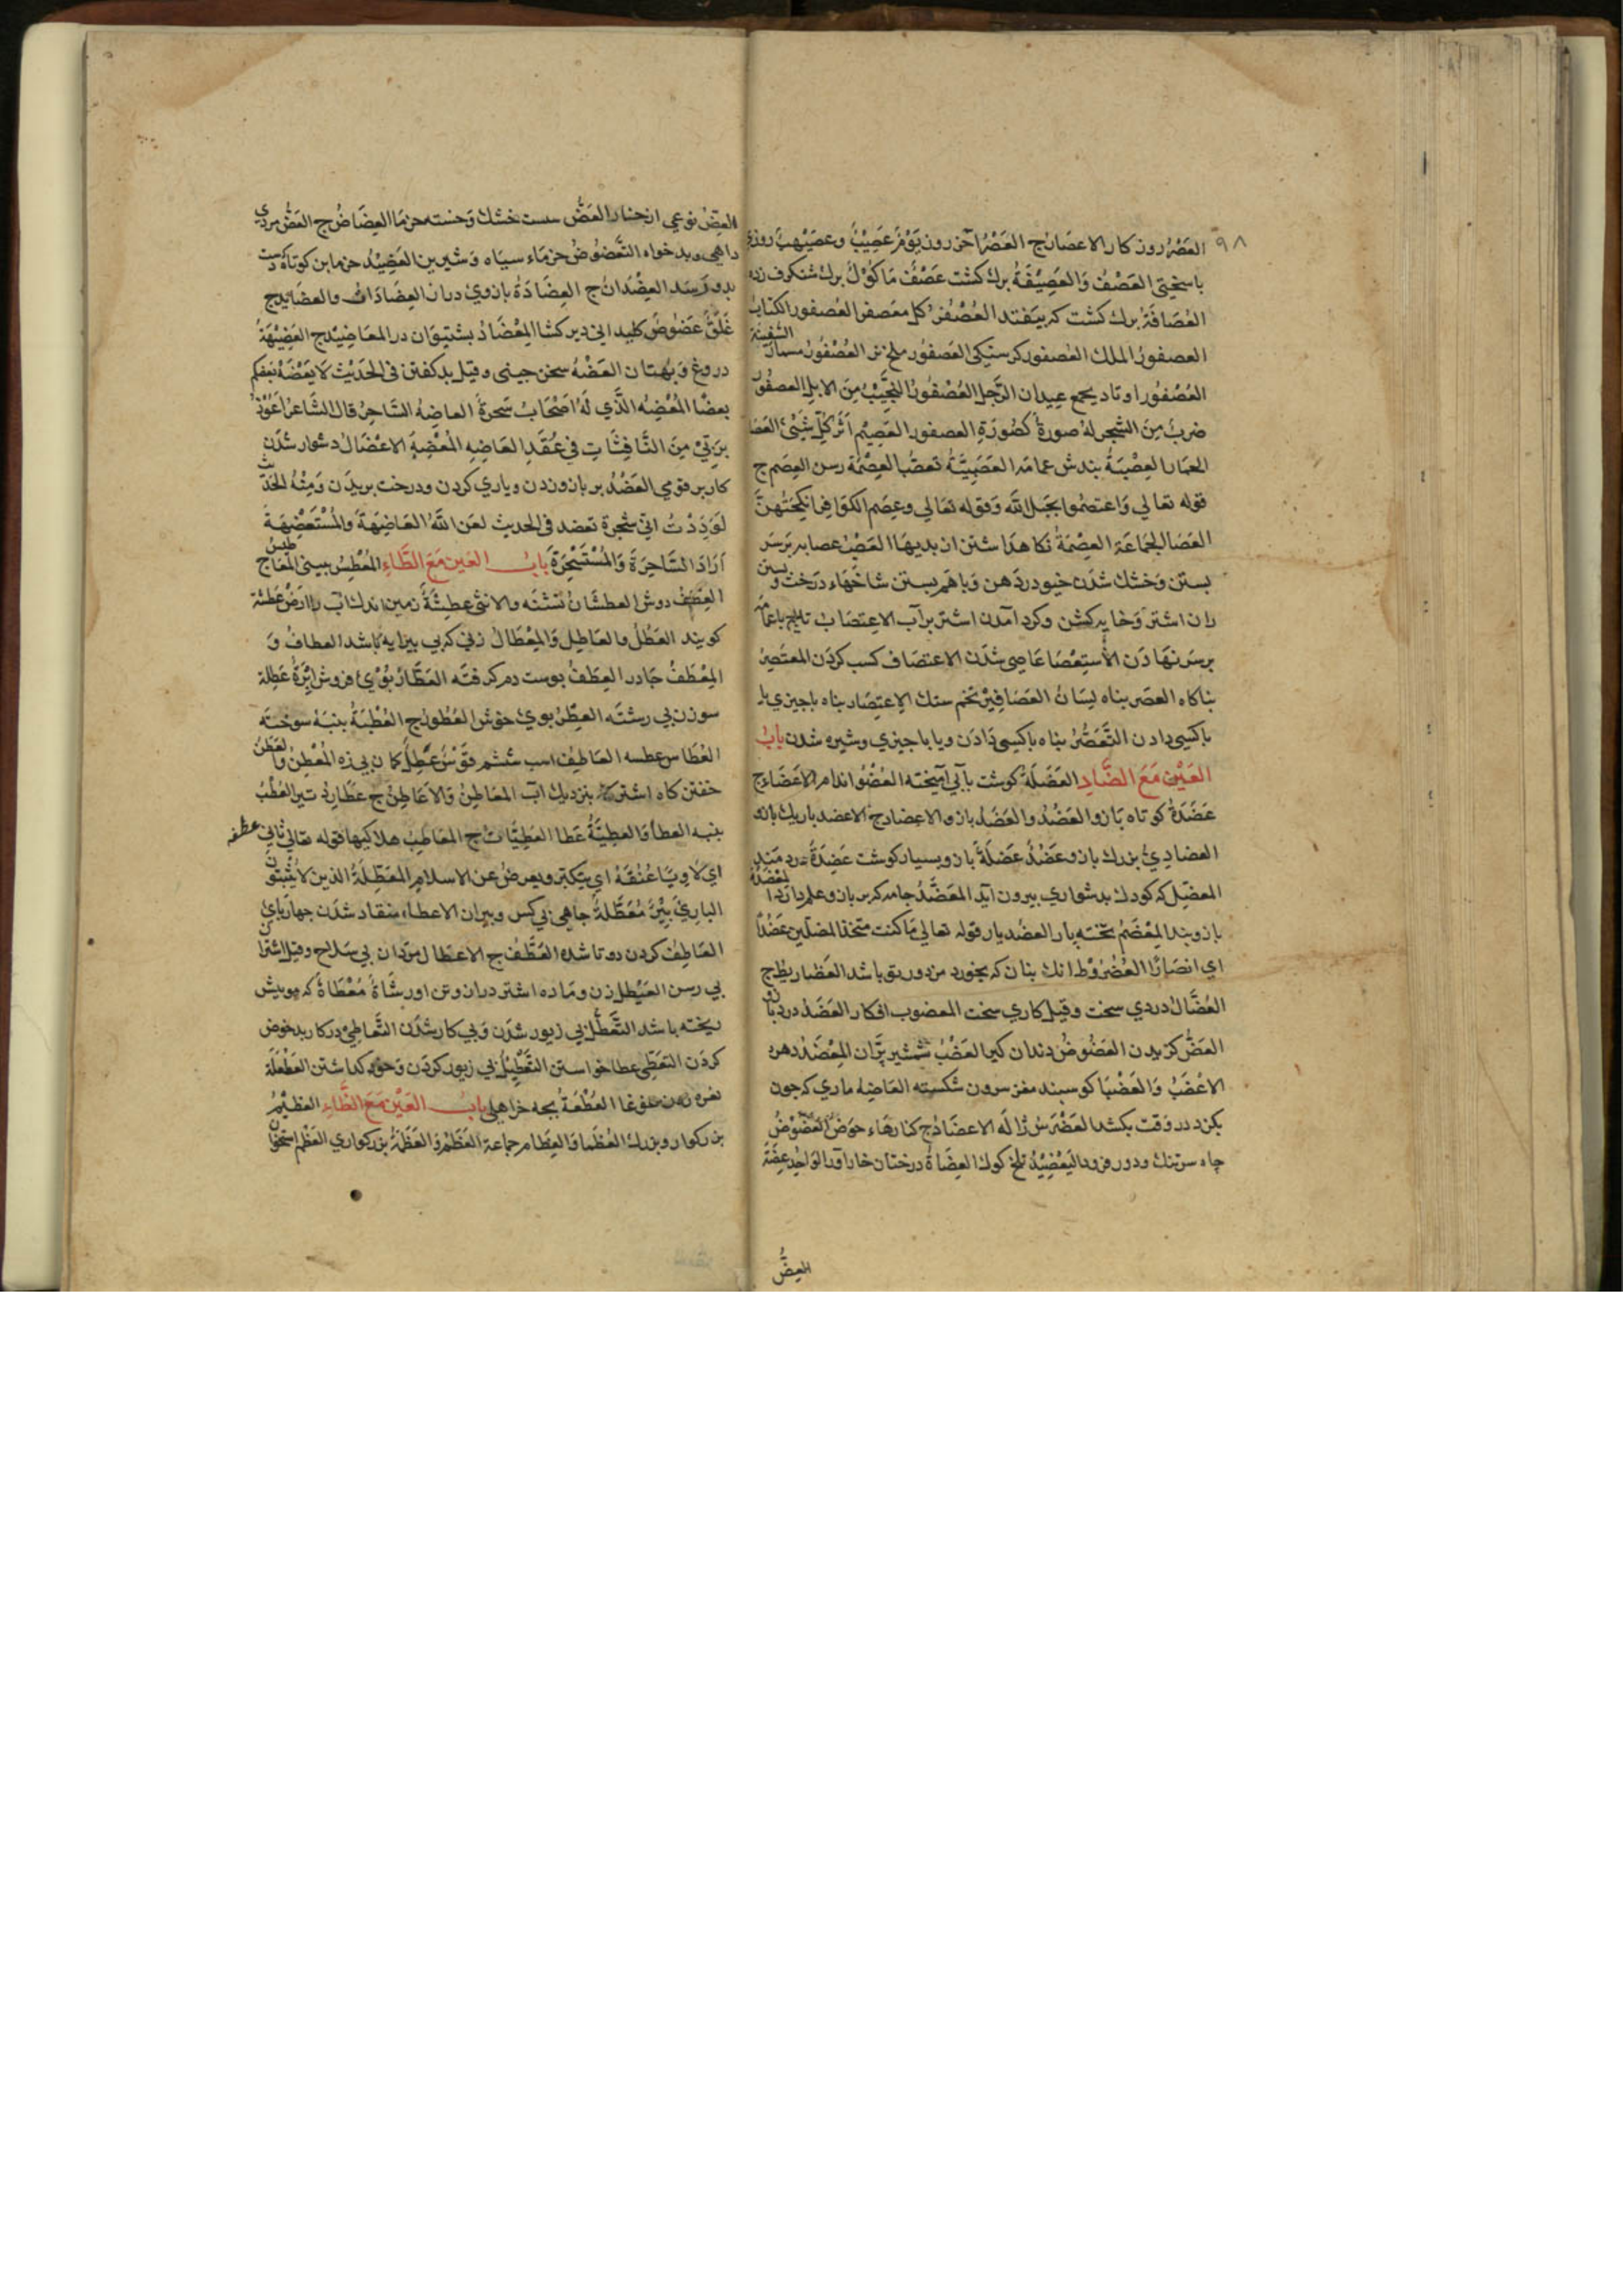 ٩٨
العَصْرُ روزكار الاعصَارُج العَصْرُ آخر روز يَوْمٌ عَصِيْبٌ وعصَيْهبٌ روزي
باسختى العَصْفُ وَالعَصِيْفَةُ برك كشت عَصْفٌ مَا كُوْلٌ برك شنكرف زده
العُصَافَةُ برك كشت كه بيَفتد العُصْفُرُ كل معصفر العُصفور الكتاب
السَّفِينَة
العصفورُ الملك العُصفور كرسنكى العَصفُور ملخ نر العُصْفُورُ مسمار
العُصْفُور اوتاد يجمع عيدان الرَّجل العُصْفُورُ النجَيْبُ مِنَ الابِلِ العصفُورُ
ضربٌ مِنَ الشجر لهُ صورةٌ كصُورَةِ العصفور العَصِيْم اَثَرُ كلِّ شَيْئٍ العَصَا
الخمَار العِصْبَةُ بندش عمامَه العَصَبِيَّةُ تعصُّب العِصْمَة رسن العِصَم ج
قوله تعالي وَاعتصمُوا بحَبْل اللّه وقوله تعَالي وعِصَم الكوَافِر اَيْ نكحَتُهنَّ
العَصَا الجمَاعَة العِصْمَةُ نكاهدَاشتن از بديهَا العَصْبُ عصابه برسَر
بستن وخشك شدَن خيو دردَهن وَباهَم بستن شاخهَاء درخت وبستن
ران اشتر وَخايه كشن وكرد آمدن اشتر بر آب الاعتِصَاب تاج باعمامَه
برسَر نهَادَن الأستِعْصَا عَاصي شدَن الاعتصَاف كسب كردَن المعتَصِرُ
بناكاه العصَر بناه لِسَانُ العَصَافِيْر تخم ستك الاِعتِصَار بناه باجيزي يا
باكسى دادن التَّعَصُّرُ بناه باكسى دَادَن ويا باجيزي وشيره شدن بابُ
العَيْنِ مَعَ الضَّادِ العَضَلَةُ كوشت بآبي آميخته العُضْوُ اندام الاَعْضَاءُ ج
عَضَدَةٌ كوتاه بَازو العَضُدُ والعَضَدُ بازو الاعضادج الاعضد باريك بازو
العضَادِيُّ بزرك بازو عَضُدٌ عَضَلَةٌ بازو بسيار كوشت عَضِدَةٌ دردمَند
المعضِّل كه كودك بدشواري بيرون آيد المعَضَّدُ جامه كه بر بازو علم دارَد المِعْضَدَةُ
بازوبند المِعْضَمُ تخته يار العضُد يار قوله تعالي مَا كنت متّخذ المضلّين عَضُدًا
اي انصَارًا العُضْرُوْط انك بنان كه بخورد مزدور بوَ باشد العَضَاريطُ ج
العُضَّالُ دردي سخت وقيل كاري سخت المعضوب افكار العَضَدُ درد بازو
العَضُّ كزيدن العَضُوضُ دندان كير العَضْبُ شمشير برَّان المِعْضَدُ دهره
الاَعْضَبُ وَالعَضْبَا كوسبند مغز سرون شكسته العَاضِه ماري كه جون
بكزد در وقت بكشد العَضْرَسُ ژالَه الاعضَادُج كنارهَاء حوَض العَضُوْضُ
جاه سرتنك ودور فرود اليَعْضِيْدُ تلخ كوك العِضَاةُ درختان خار آور الوَاحِد عِضَةٌ
العِضُّ
العِضُّ نوعي از خار العَضُّ ست خشك وَخسته خرمَا العِضَاضُ ج العَضُّ مردي
داهي وبدخواه التَّعضُوضُ خرمَاء سيَاه وَشيرين العَضِيْدُ خرمابن كوتاه كه دست
بدو رَسَد العِضْدَانُ ج العِضَادَةُ بازويْ در از العِضَادَاتُ والعضَايدج
غَلَقٌ عَضُوضٌ كليداني دير كشا المِعْضَادُ بشتيوَان در المعَاضِيْدج العَضِيْهَةُ
دروغ وَبُهتان العَضْهُ سخن جيني وقيل بد كفتن فى الحَدِيْث لاَ يَعْضَهْ بَعْضكم
بعضًا المُعْضِهُ الَّذي لَهُ اَصْحَابٌ سَحرةٌ العاضِهُ السَّاحِرُ قال الشَّاعرُ اَعُوْذُ
بِرَبِّيْ مِنَ النَّافِثَاتِ فِي عُقَدِ العَاضِهِ المُعْضِهِ الاعْضَالُ دشوار شدَن
كار بر قومي العَضْدُ بر بازو زدن وياري كردن ودرخت بريدن وَمِنْهُ الحَدِيْث
لوَدِدْتُ انّى شجرة تعضد فى الحديث لعن اللّهُ العَاضِهَةَ وَالمُسْتَعْضِهَةَ
اَرَادَ السَّاحِرَةَ وَالمُسْتَسْحِرَةَ بابُ العَين مَعَ الطَّاءِ المَعْطِسُ بينى المعَاطِسُ ج
العِطْفُ دوش العطشَانُ تشنَه والانثى عطِشَةٌ زمين اندك آب را ارضٌ عَطِشَة
كويند العَطُلُ والعَاطِل وَالمِعْطَالُ زني كه بي بيرايه باشد العطافُ وَ
المِعْطَفُ جادر العِطَفُ بوست دم كرفته العَطَّارُ بُوْيْ فروش اِبْرَةٌ عَطِلة
سوزن بي رشتَه العِطْرُ بويْ خوش العُطُورُج العُطْبَةُ بنبَهُ سوختَه
العُطَاس عطسه العَاطِفُ اسب ششم قَوْسٌ عُطُلٌ كمان بي زه المُعْطِنُ والعَطَنُ
خفتن كاه اشتر بنزديك آب المعَاطِنُ وَالاَعَاطِنُ ج عطَارِدُ تير العُطْبُ
بنبه العطَا وَالعطِيَّةُ عَطا العَطِيَّاتُ ج المعَاطِبُ هلاكيها قوله تعَالي ثَانِيَ عِطْفِه
اي لاَوِيًا عُنُقَهُ اي يتكبّر ويعرضُ عن الاسلام المعَطِّلَةُ الذين لاَ يُثْبِتُوْنَ
البارِيَ بِئْرٌ مُعَطَّلةٌ جاهي بي كس وبيران الاعطاء منقاد شدَن جهارباي
العَاطِفُ كردن دوتا شده العُطَّفُ ج الاعطَال مردَان بي سَلاح وقيل اشتران
بي رسن العَيْطَل زن ومَاده اشتر دراز وتن اور شَاةٌ مُعْطَاةٌ كه مويش
ريخته باشد التَّعَطُّل بي زيور شدَن وَبي كار شدَن التَّعَاطِيْ در كار بد خوض
كردَن التعَطّي عطا خواستن التَّعْطِيْلُ بي زيور كردن وَحق كذاشتن العَطْعَطَة
نعره زدن وَغوغا العُطْعُةُ بجه خراهلي بابُ العَيْن مَعَ الظَّاءِ العظِيْمُ
بزركوار وبزرك العُظَمَا وَالعِظَام جماعة العَظْمُ وَالعَظْمَةُ بزركواري العَظْم استخوَان